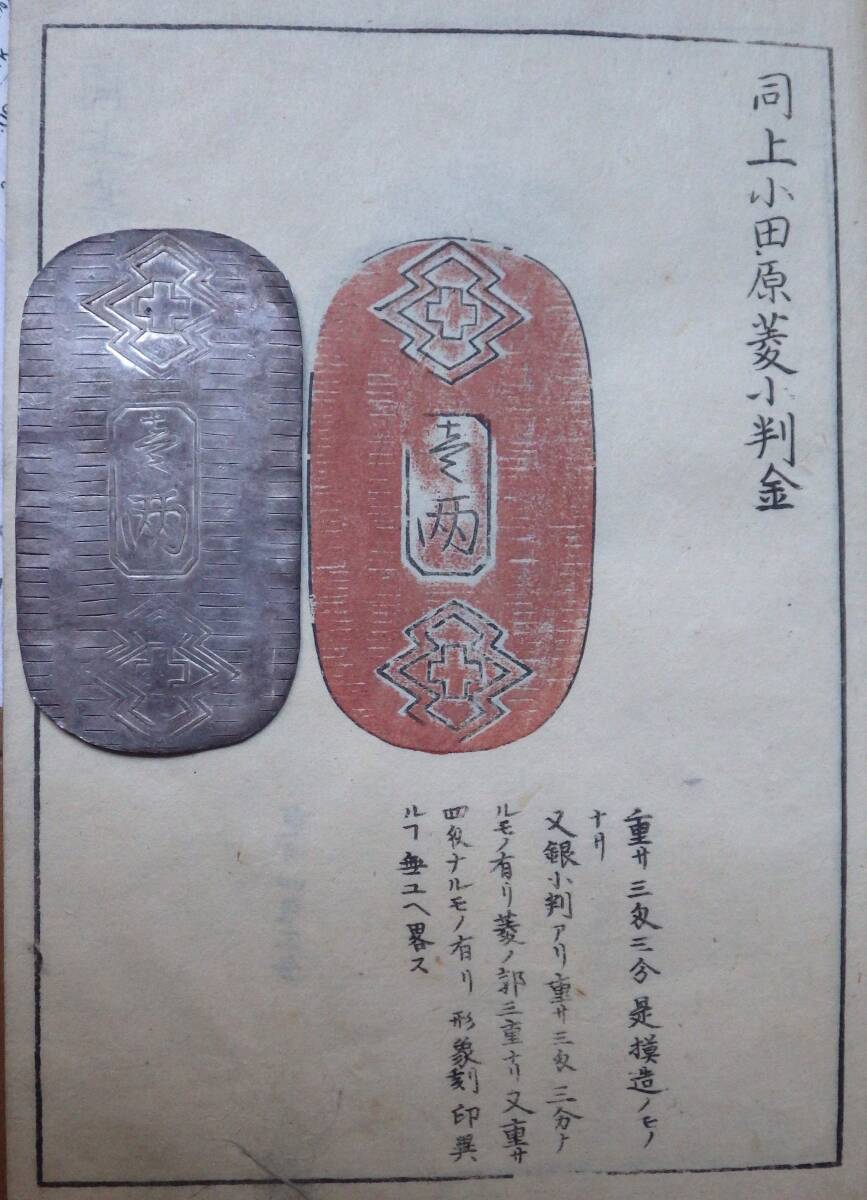 同上小田原菱小判金
壱两
壱两
重サ三匁三分是摸造ノモノ
ナリ
又銀小判アリ重サ三匁三分ナ
ルモノ有リ菱ノ郭三重ナリ又重サ
四匁ナルモノ有リ形象刻印異
ルヿ無ユヘ畧ス